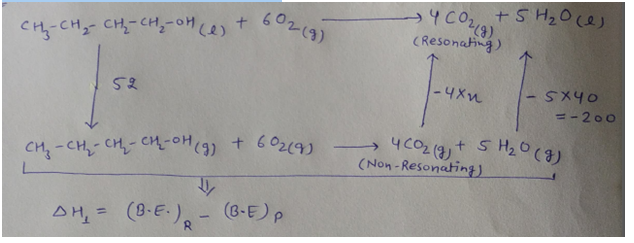 CH₃-CH₂-CH₂-CH₂-OH(l) + 6O₂(g) → 4CO₂(g) + 5H₂O(l)
(Resonating)
52
-4×x
- 5×40
= -200
CH₃-CH₂-CH₂-CH₂-OH(g) + 6O₂(g) → 4CO₂(g) + 5H₂O(g)
(Non-Resonating)
⇓
ΔH₁ = (B.E.)R - (B.E)P